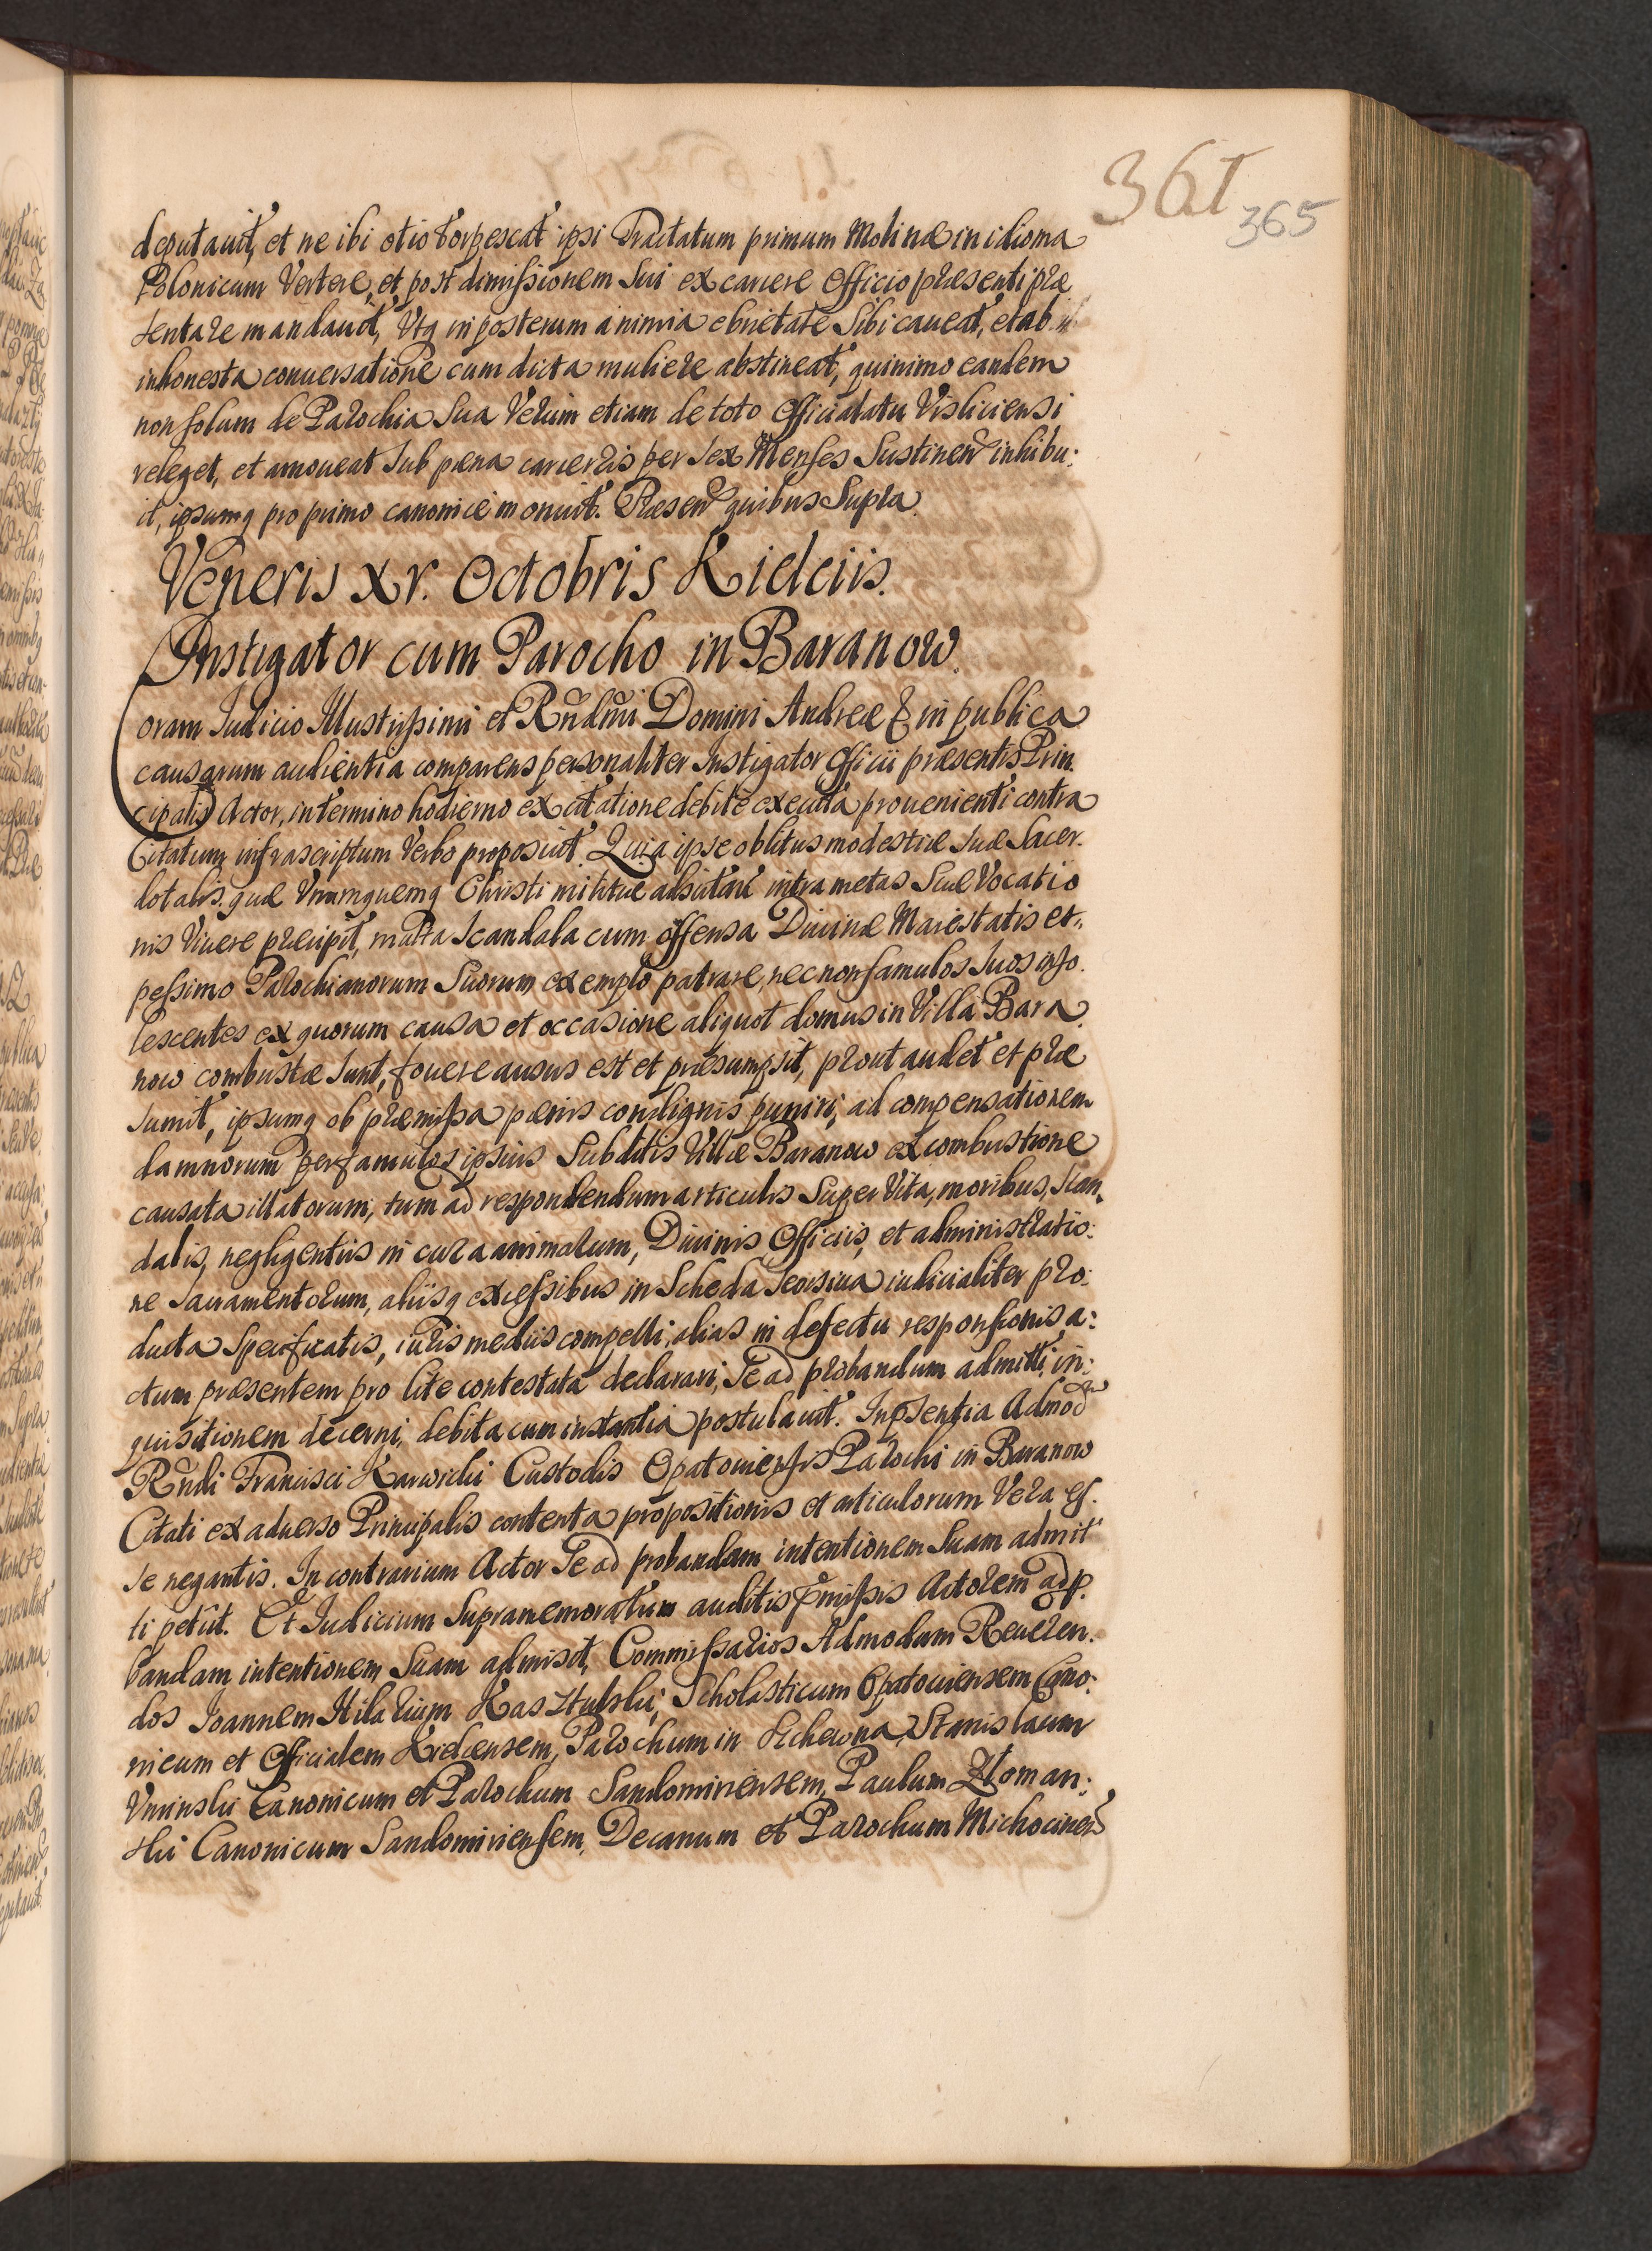 361
365
deputavit, et ne ibi otio torpescat ipsi Tractatum primum Molinæ in idioma
Polonicum Vertere, et post dimissionem Sui ex carcere Officio præsenti præ
sentare mandavit, Utq in posterum a nimia ebrietate Sibi caveat, et ab
inhonesta conversatione cum dicta muliere abstineat, quinimo eandem
non solum de Parochia Sua Verum etiam de toto Officialatu Visliciensi
releget, et amoveat Sub pæna carceris per Sex Menses Sustinen inhibu:
it, ipsumq pro primo canonice monuit. Præsen quibus Supra.
Veneris xv. Octobris Kielciis.
Instigator cum Parocho in Baranow.
Coram Iudicio Illustrissimi et Rñdmi Domini Andreæ & in publica
causarum audientia comparens personaliter Instigator Officii præsentis Prin
cipalis Actor, in termino hodierno ex citatione debite executa provenienti contra
Citatum infrascriptum Verbo proposuit. Quia ipse oblitus modestiæ Suæ Sacer.
dotalis, quæ Vnumquemq Christi militiæ adscitum intra metas Suæ Vocatio
nis Vivere præcipit, multa Scandala cum offensa Divinæ Maiestatis et
pessimo Parochianorum Suorum exemplo patrare, nec non famulos Suos inso.
lescentes ex quorum causa et occasione aliquot domus in Villa Bara
now combustæ Sunt, fovere ausus est et præsumpsit, prout audet et præ
sumit, ipsumq ob præmissa pænis condignis puniri, ad compensationem
damnorum per famulos ipsius Subditis Villæ Baranow ex combustione
causata illatorum, tum ad respondendum articulis Super Vita, moribus, Scan
dalis, negligentiis in cura animarum, Divinis Officiis, et administratio:
ne Sacramentorum, aliisq excessibus in Scheda Seorsiva iudicialiter pro:
ducta Specificatis, iuris mediis compelli, alias in defectu responsionis a:
ctum præsentem pro lite contestata declarari, Se ad probandum admitti, in:
quisitionem decerni, debita cum instantia postulavit. In psentia Admod
Rñdi Francisci Karwicki Custodis Opatoviensis Parochi in Baranow
Citati ex adverso Principalis contenta propositionis et articulorum Vera es.
se negantis. In contrarium Actor Se ad probandam intentionem Suam admit
ti petiit. Et Iudicium Supramemoratum auditis pmissis Actorem ad p.
bandam intentionem Suam admisit, Commissarios Admodum Reveren.
dos Ioannem Hilarium Scholasticum Opatoviensem Cano:
nicum et Officialem Kielcensem, Parochum in Stanislaum
Vminski Canonicum et Parochum Sandomiriensem, Paulum
Canonicum Sandomiriensem, Decanum et Parochum Michocinen